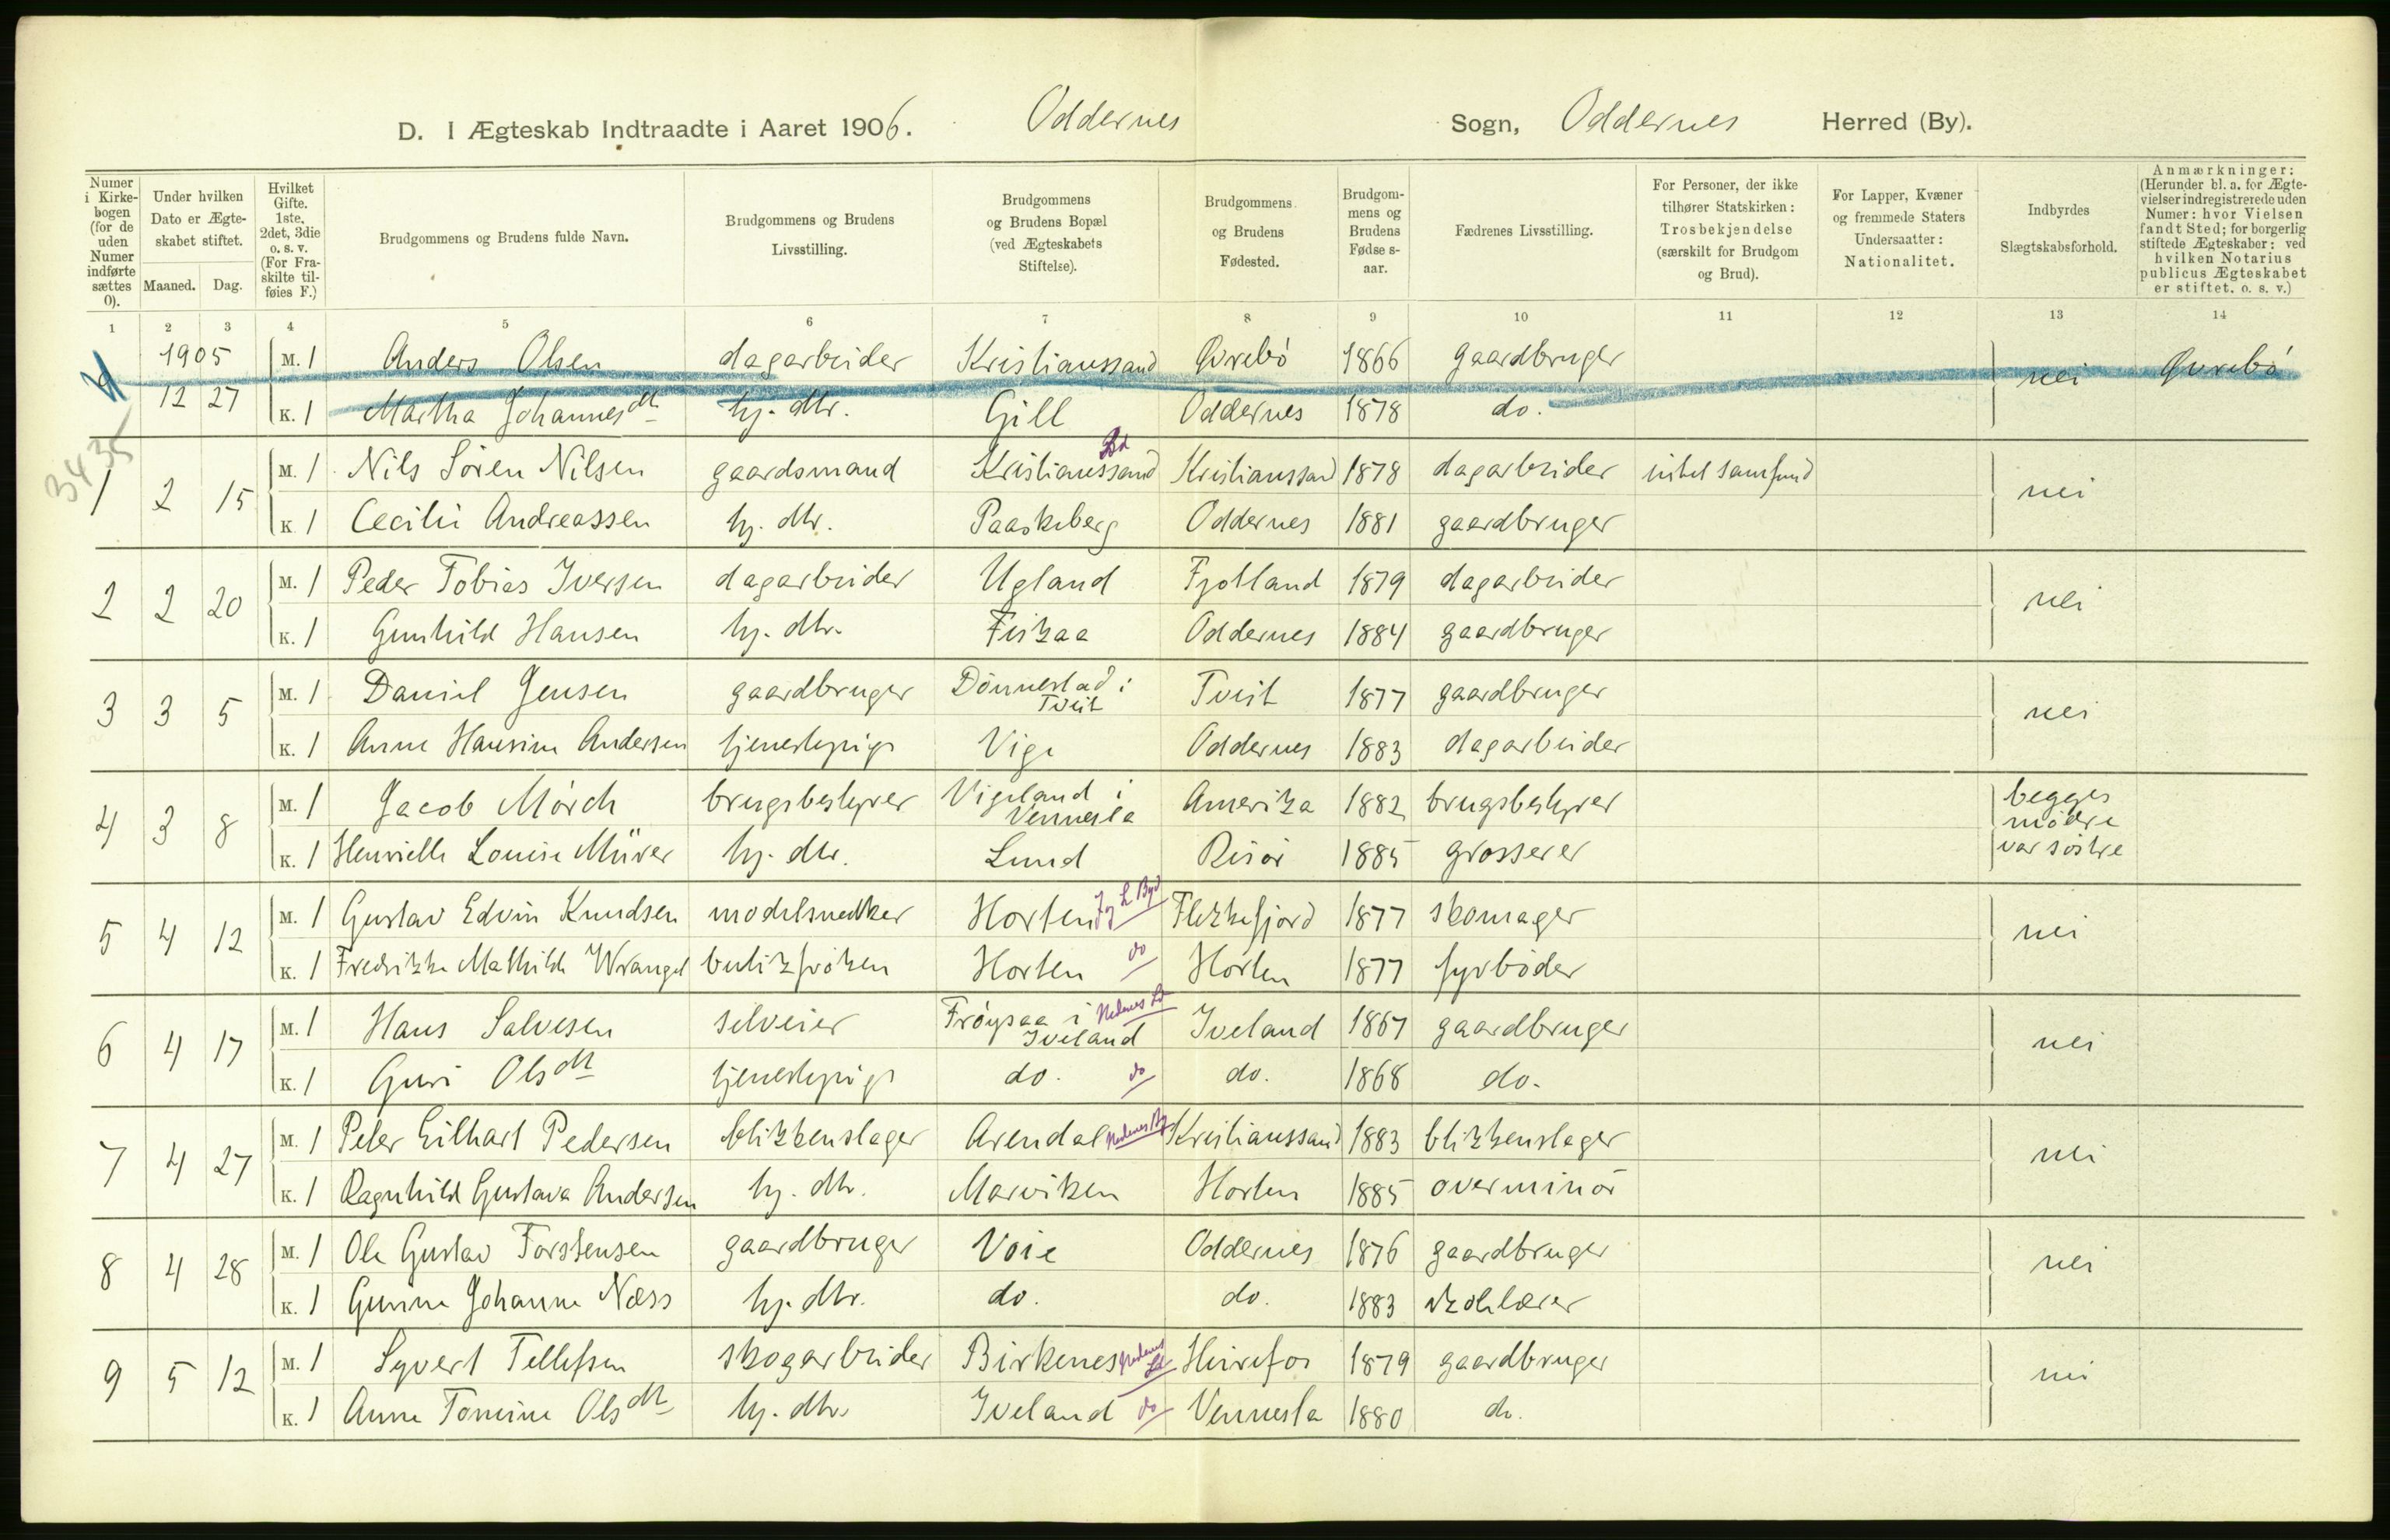 D. I Ægteskab Indtraadte i Aaret 1906. Oddernes Sogn, Oddernes Herred (By).
Numer i Kirkebogen (for de uden Numer indførte sættes 0).
Under hvilken Dato er Ægteskabet stiftet.
Maaned. Dag.
Hvilket Gifte. 1ste, 2det, 3die o. s. v. (For Fraskilte tilføies F.)
Brudgommens og Brudens fulde Navn.
Brudgommens og Brudens Livsstilling.
Brudgommens og Brudens Bopæl (ved Ægteskabets Stiftelse).
Brudgommens og Brudens Fødested.
Brudgommens og Brudens Fødselsaar.
Fædrenes Livsstilling.
For Personer, der ikke tilhører Statskirken: Trosbekjendelse (særskilt for Brudgom og Brud).
For Lapper, Kvæner og fremmede Staters Undersaatter: Nationalitet.
Indbyrdes Slægtskabsforhold.
Anmærkninger: (Herunder bl. a. for Ægtevielser indregistrerede uden Numer: hvor Vielsen fandt Sted; for borgerlig stiftede Ægteskaber: ved hvilken Notarius publicus Ægteskabet er stiftet. o. s. v.)
1 2 3 4 5 6 7 8 9 10 11 12 13 14
1905 M. 1 Anders Olsen dagarbeider Kristianssand Øvrebö 1866 gaardbruger nei Øvrebö
12 27 K. 1 Martha Johannesdtt hj. dtr. Gill Oddernes 1878 do.
3435
1 2 15 M. 1 Nils Sören Nilsen gaardsmand Kristianssand Kristianssand 1878 dagarbeider intet samfund nei
K. 1 Cecilie Andreassen hj. dtr. Paaskeberg Oddernes 1881 gaardbruger
2 2 20 M. 1 Peder Tobias Iversen dagarbeider Ugland Fjotland 1879 dagarbeider nei
K. 1 Gunhild Hansen hj. dtr. Fiskaa Oddernes 1884 gaardbruger
3 3 5 M. 1 Daniel Jensen gaardbruger Dönnestad i Tveit Tveit 1877 gaardbruger nei
K. 1 Anne Hansine Andersen tjenestepige Vige Oddernes 1883 dagarbeider
4 3 8 M. 1 Jacob Mörch brugsbestyrer Vigeland i Vennesla Amerika 1882 brugsbestyrer begges mödre var söstre
K. 1 Henriette Louise Mürer hj. dtr. Lund Risör 1885 grosserer
5 4 12 M. 1 Gustav Edvin Knudsen modelsnedker Horten J & L Byd Flekkefjord 1877 skomager nei
K. 1 Fredrikke Mathilde Wrangel butikfröken Horten do Horten 1877 fyrböder
6 4 17 M. 1 Hans Salvesen selveier Fröysaa i Iveland Nedenes Ld Iveland 1867 gaardbruger nei
K. 1 Guri Olsdtt tjenestepige do. do do. 1868 do.
7 4 27 M. 1 Peter Eilhart Pedersen blikkenslager Arendal Nedenes By Kristianssand 1883 blikkenslager nei
K. 1 Ragnhild Gustava Andersen hj. dtr. Marviken Horten 1885 overminör
8 4 28 M. 1 Ole Gustav Torstensen gaardbruger Voie Oddernes 1876 gaardbruger nei
K. 1 Gunine Johanne Næss hj. dtr. do. do. 1883 skolelærer
9 5 12 M. 1 Syvert Tellefsen skogarbeider Birkenes Nedenes Ld Heirefos 1879 gaardbruger nei
K. 1 Anne Tomine Olsdtt hj. dtr. Iveland do Vennesla 1880 do.